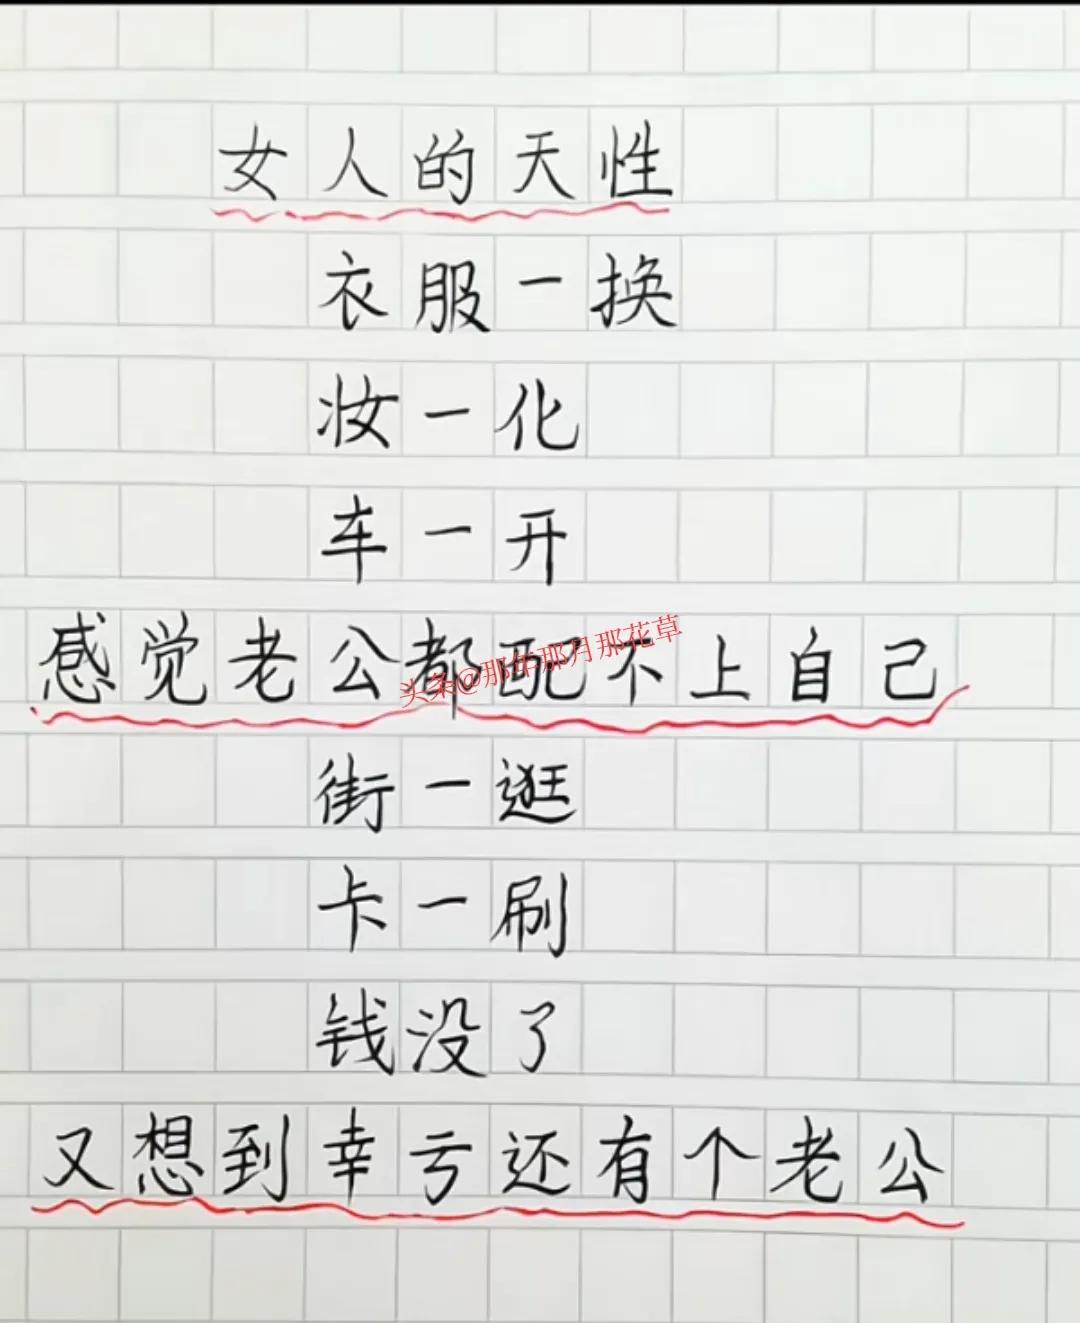 女人的天性
衣服一换
妆一化
车一开
感觉老公都配不上自己
头条@那年那月那花草
街一逛
卡一刷
钱没了
又想到幸亏还有个老公